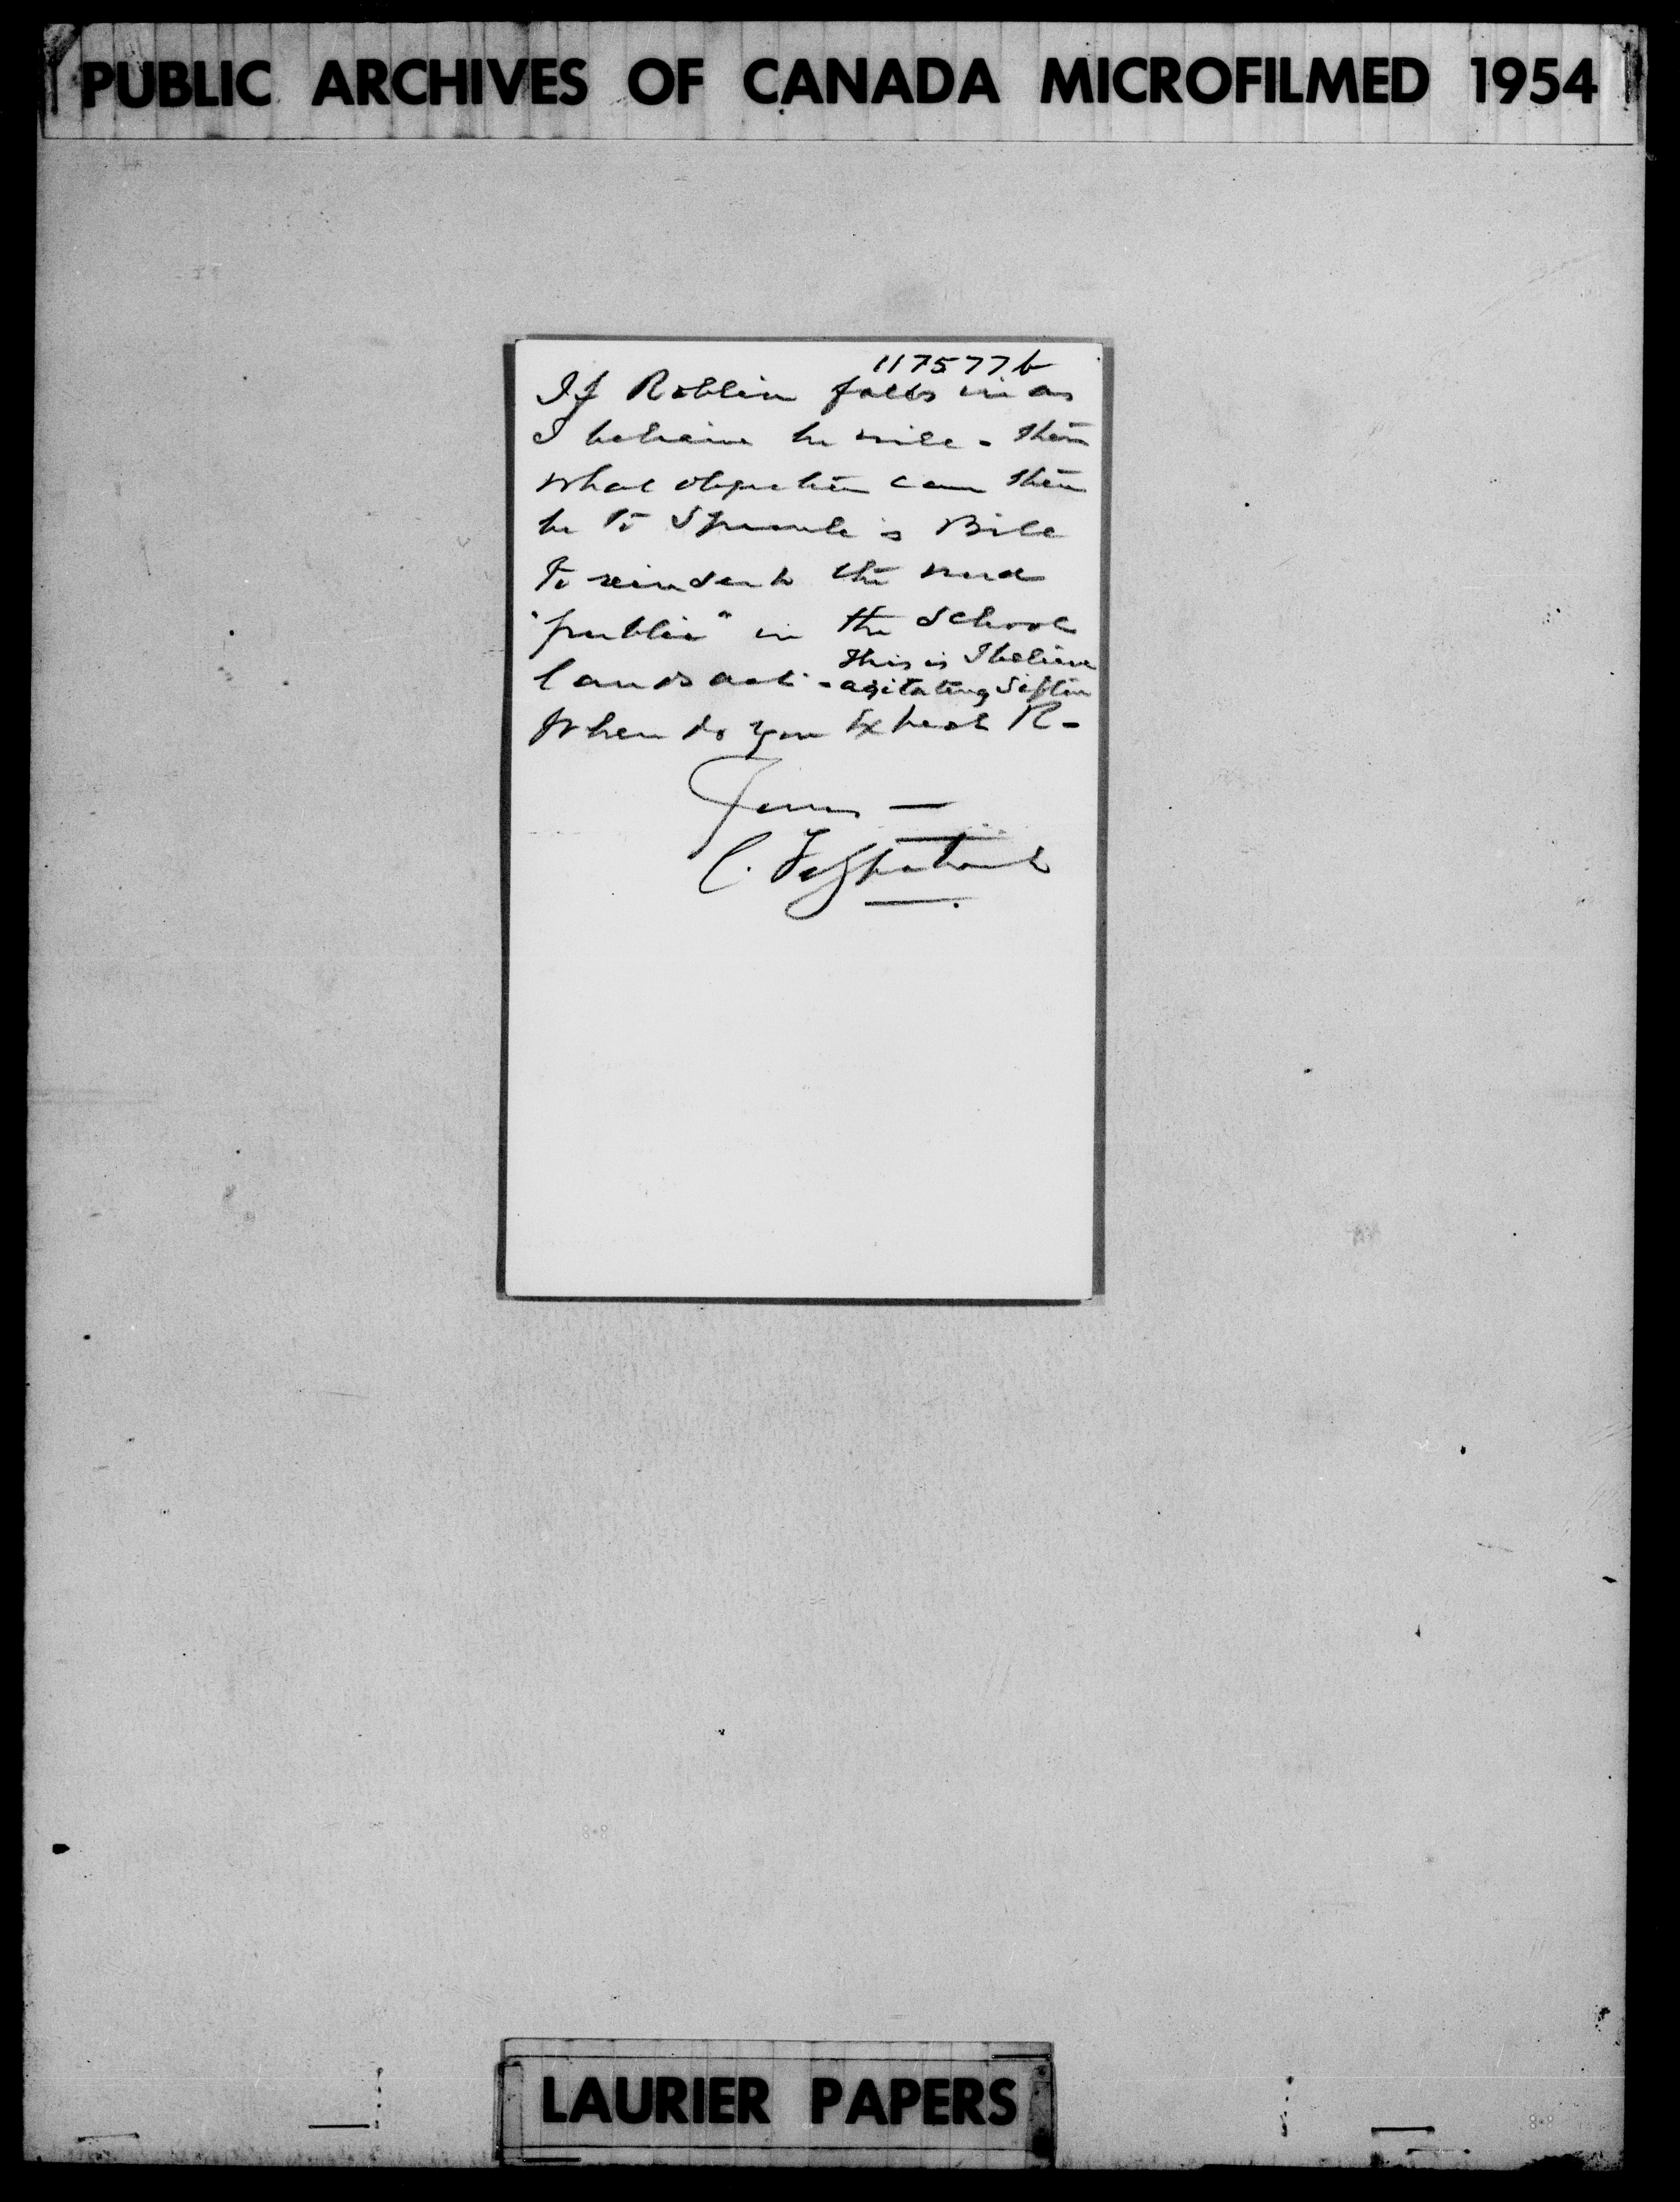 PUBLIC ARCHIVES OF CANADA MICROFILMED 1954
117577b
If Roblin falls in as
I believe he will - then
what objection can there
be to Sproule's Bill
to reinsert the word
"public" in the School
lands act - This is I believe
agitating Sifton
When do you expect R-
Yours —
C. Fitzpatrick
LAURIER PAPERS